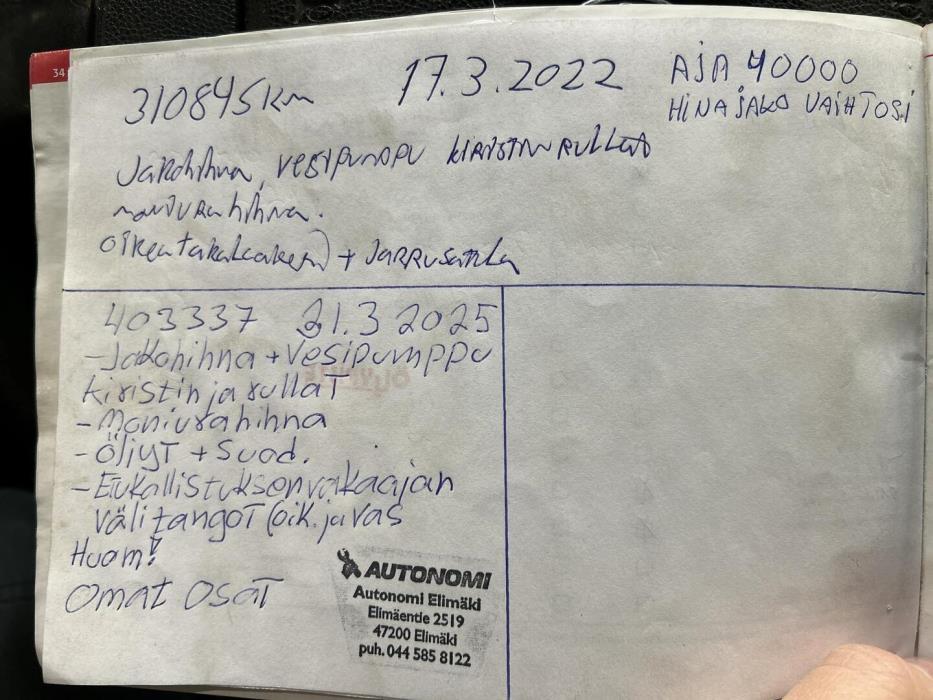 34
310845 km 17.3.2022 AJA 40000
HINAJAKO VAIHTOSI
Jakohihna, vesipumppu kiristin rullat
moniurahihna.
oikea takalaakeri + Jarrusatula
403337 21.3 2025
-Jakohihna + Vesipumppu
kiristin ja rullat
-Moniurahihna
-Öljyt + Suod.
-Etukallistuksenvakaajan
välitangot (oik. ja vas
Huom!
Omat osat
AUTONOMI
Autonomi Elimäki
Elimäentie 2519
47200 Elimäki
puh. 044 585 8122